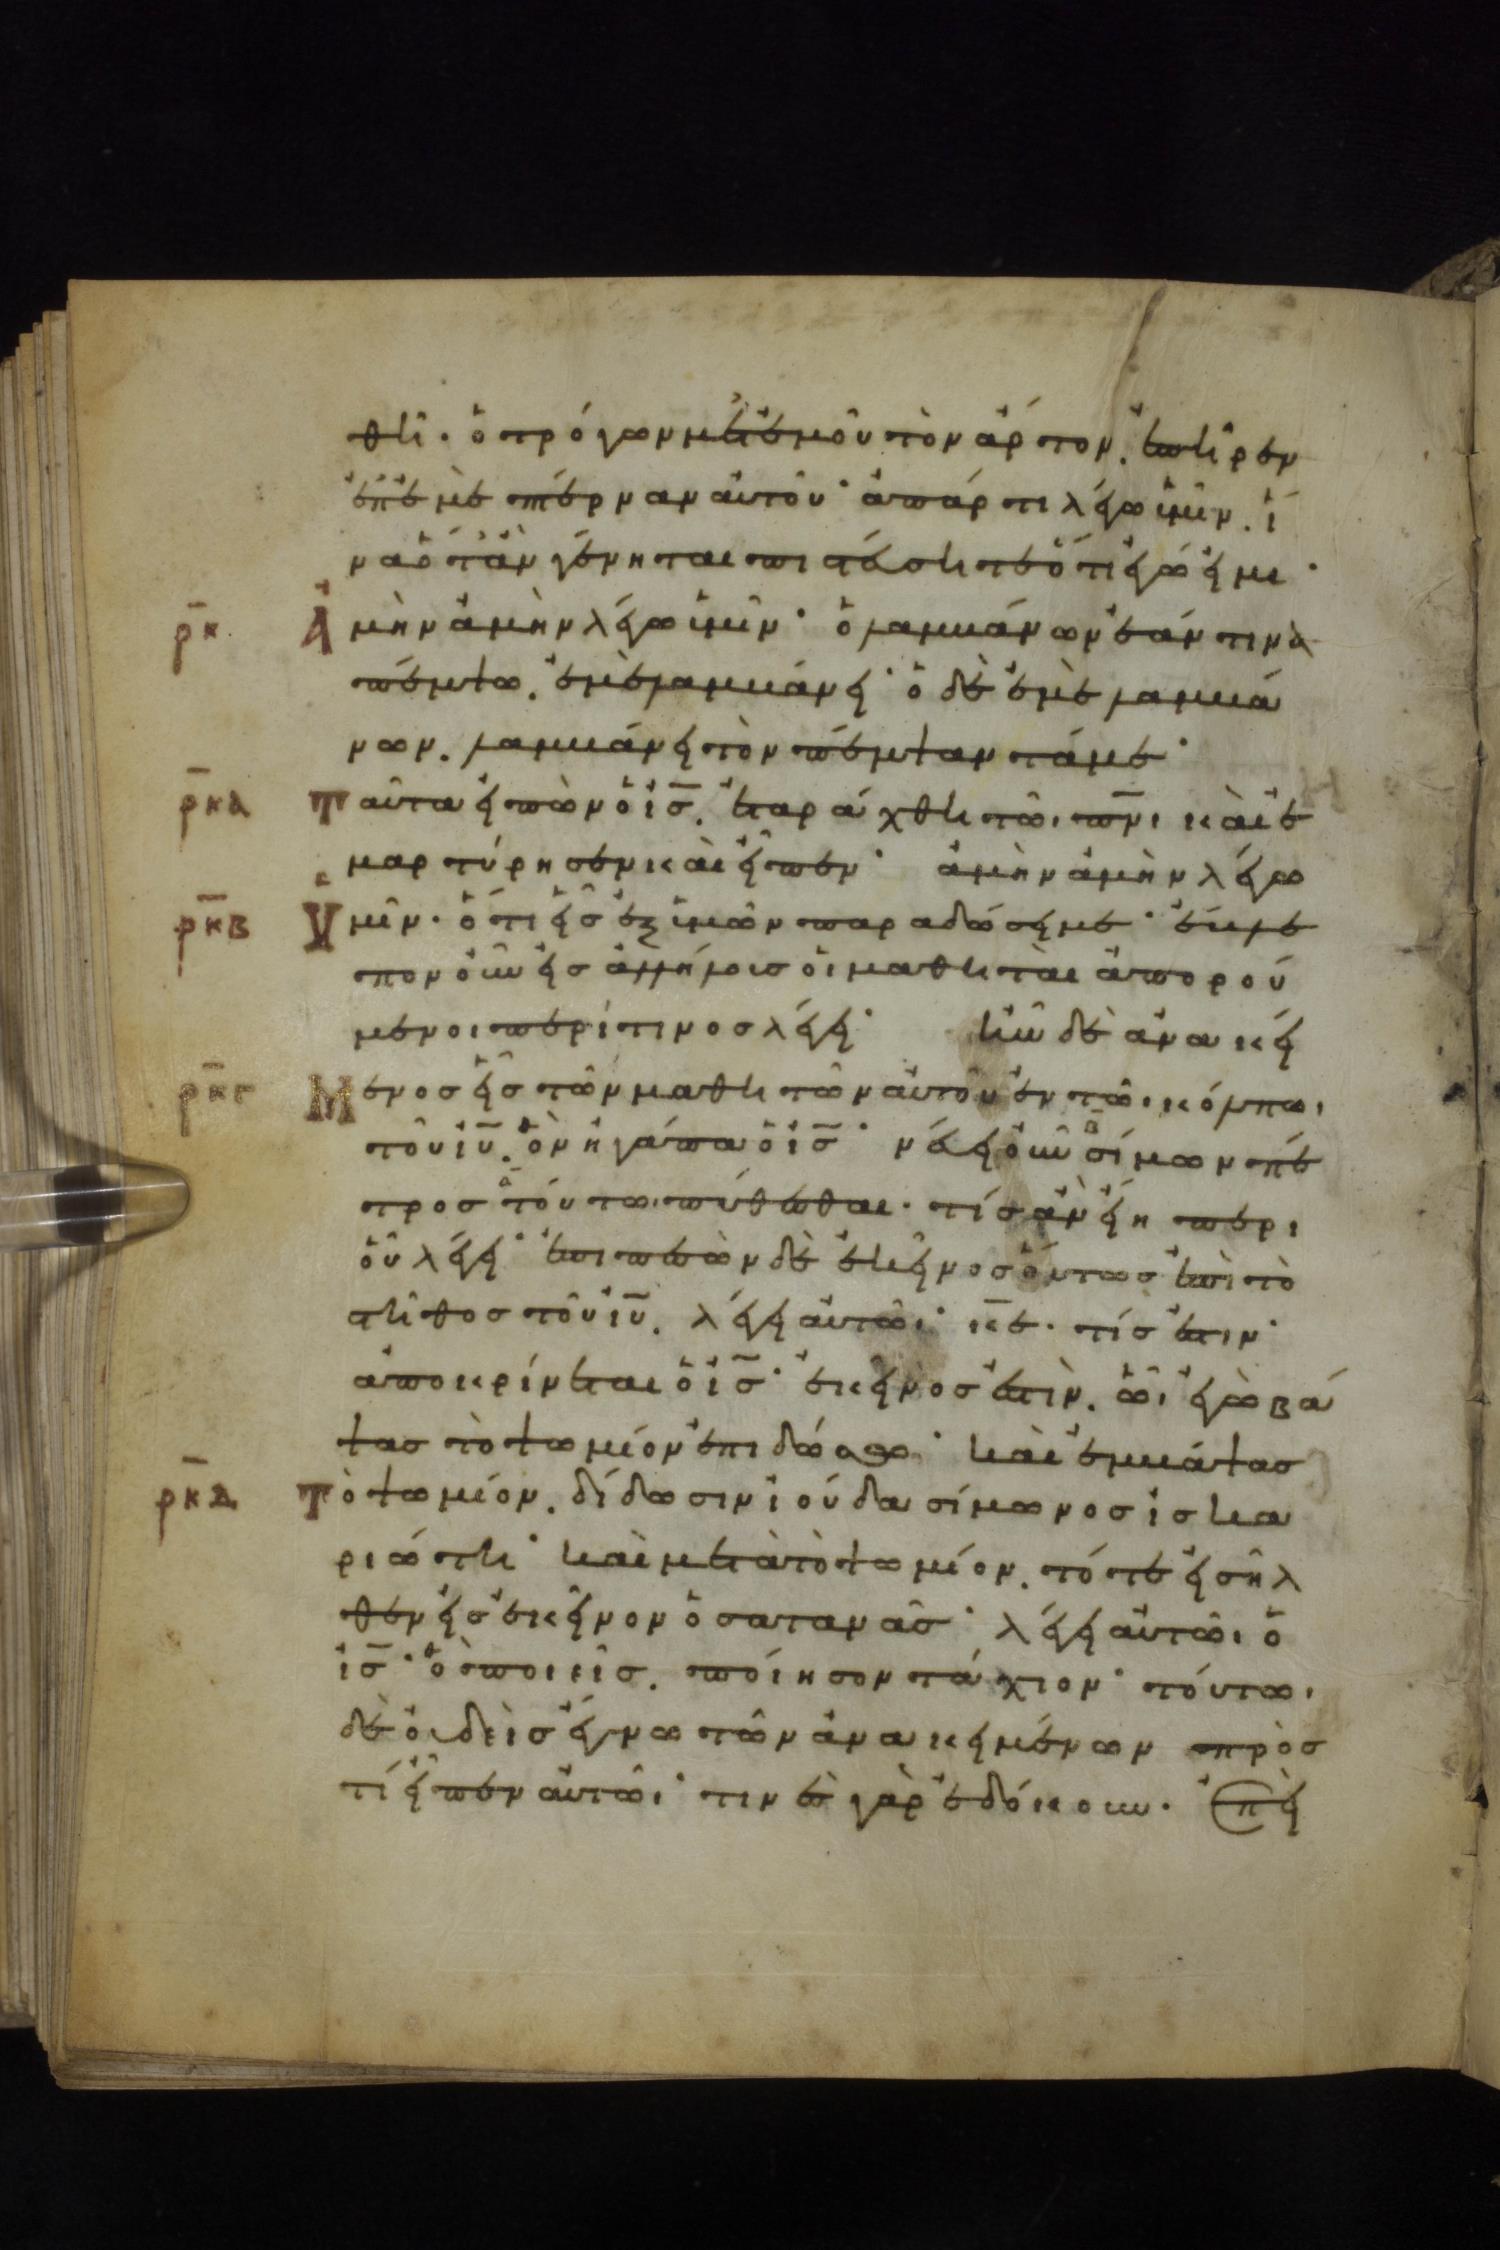 θῆ· ὁ τρώγων μετ' ἐμοῦ τὸν ἄρτον. ἐπῆρεν
ἐπ' ἐμὲ πτέρναν αὐτοῦ· ἀπάρτι λέγω ὑμῖν. ἵ
να ὅταν γένηται πιστεύσητε ὅτι ἐγώ εἰμι·
ρ̅κ̅ Ἀμὴν ἀμὴν λέγω ὑμῖν· ὁ λαμβάνων ἐάν τινα
πέμψω. ἐμὲ λαμβάνει· ὁ δὲ ἐμὲ λαμβά
νων. λαμβάνει τὸν πέμψαντά με·
ρ̅κ̅α̅ Ταῦτα εἰπὼν ὁ ι̅σ̅. ἐταράχθη τῶι π̅ν̅ι καὶ ἐ
μαρτύρησεν καὶ εἶπεν· ἀμὴν ἀμὴν λέγω
ρ̅κ̅β̅ Ὑμῖν. ὅτι εἷς ἐξ ὑμῶν παραδώσει με· ἔβλε
πον οὖν εἰς ἀλλήλους οἱ μαθηταὶ ἀπορού
μενοι περὶ τίνος λέγει· ἦν δὲ ἀνακεί
ρ̅κ̅γ̅ Μενος εἷς τῶν μαθητῶν αὐτοῦ ἐν τῶι κόλπωι
τοῦ ι̅υ̅. ὃν ἠγάπα ὁ ι̅σ̅· νεύει οὖν σίμων πέ
τρος τούτωι πυθέσθαι. τίς ἂν εἴη περὶ
οὗ λέγει· ἐπιπεσὼν δὲ ἐκεῖνος οὕτως ἐπὶ τὸ
στῆθος τοῦ ι̅υ̅. λέγει αὐτῶι· κ̅ε̅. τίς ἐστιν·
ἀποκρίνεται ὁ ι̅σ̅· ἐκεῖνος ἐστὶν. ὧι ἐγὼ βά
ψας τὸ ψωμίον ἐπιδώσω· καὶ ἐμβάψας
ρ̅κ̅δ̅ Τὸ ψωμίον. δίδωσιν ἰούδα σίμωνος ἰσκα
ριώτη· καὶ μετὰ τὸ ψωμίον. τότε εἰσῆλ
θεν εἰς ἐκεῖνον ὁ σατανᾶς· λέγει αὐτῶι ὁ
ι̅σ̅· ὃ ποιεῖς. ποίησον τάχιον· τούτωι
δὲ οὐδεὶς ἔγνω τῶν ἀνακειμένων πρὸς
τί εἶπεν αὐτῶι· τινὲς γὰρ ἐδόκουν. ἐπεὶ